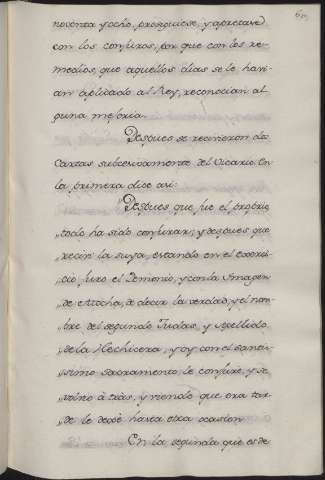 noventa y ocho, prosiguiese, y apretase
con los conjuros, por que con los re-
medios, que aquellos dias se le havi-
an aplicado al Rey, reconocian al
guna mejoria.
Despues se recivieron dos
Cartas subcesivamente del Vicario. En
la primera dice asi:
Despues que fue el proprio
„todo ha sido conjurar; y despues que
„recivi la suya, estando en el exorci-
„cio juro el Demonio, y con la Imagen
„de Atocha, de decir la verdad, y el nom-
„bre del segundo Judas, y Apellido
„de la Hechicera, y oy con el santi-
„simo sacramento, le conjure, y se
„volvio à tràs, y viendo que era tar-
„de le dexè hasta otra ocasion
En la segunda que es de